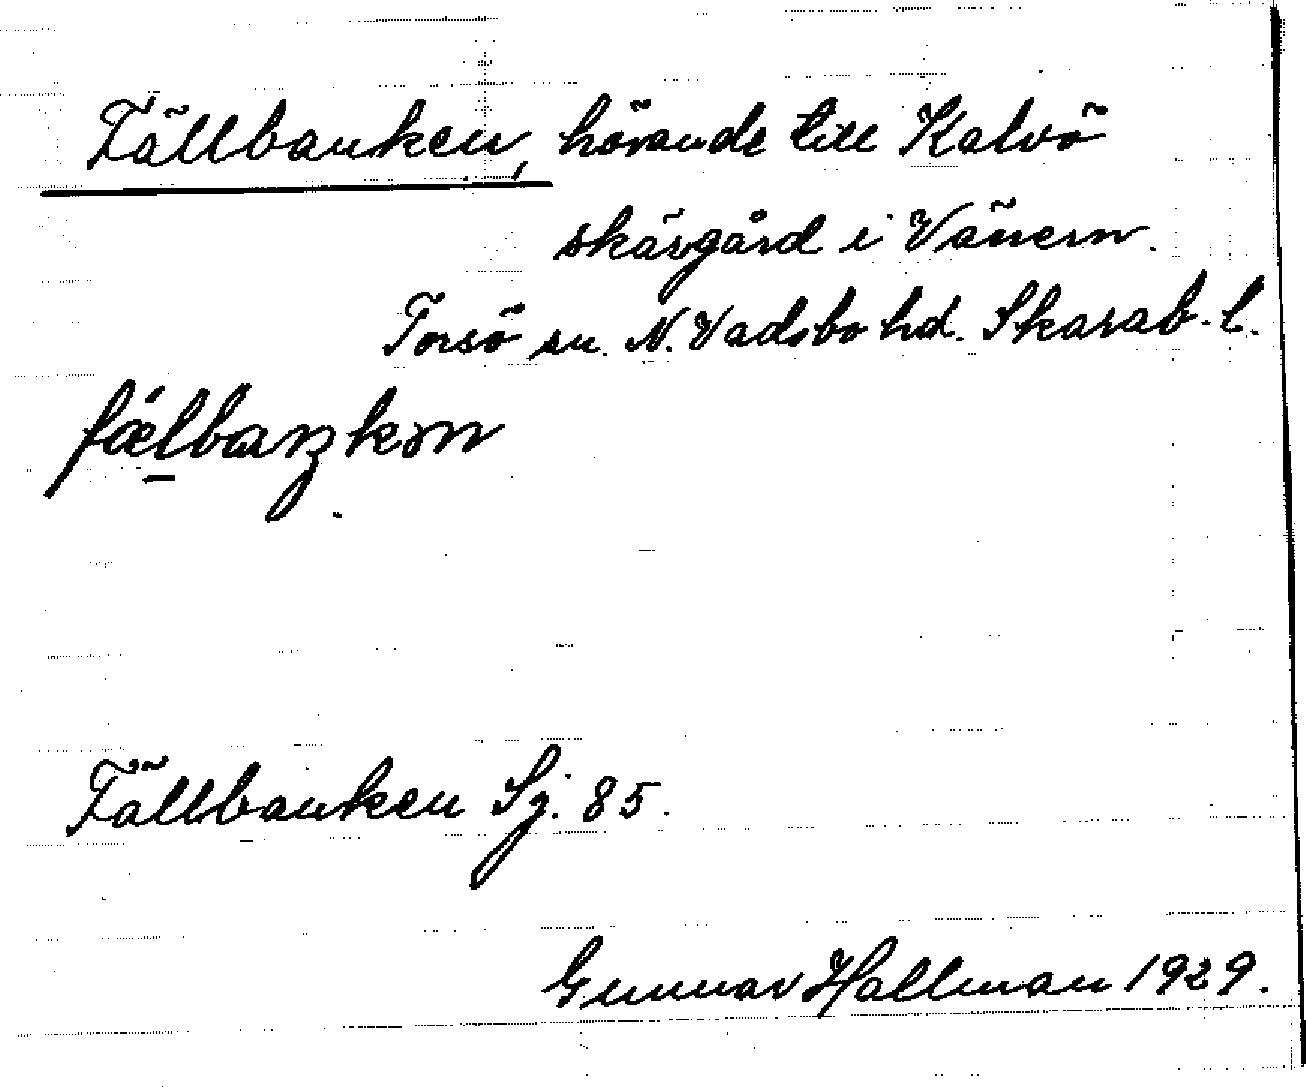 Fällbanken, hörande till Kalvö
skärgård i Vänern.
Torsö sn. N. Vadsbo hd. Skarab. l.
fǽl̠baŋkən
Fällbanken Sj. 85.
Gunnar Hallman 1929.